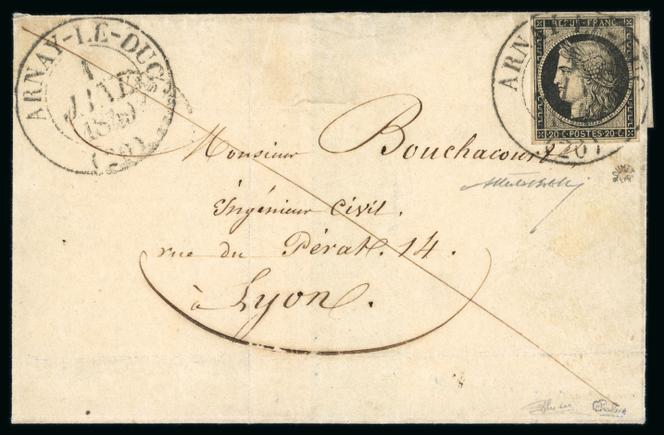 ARNAY-LE-DUC
1
JANV.
1849
(20)
REPUB. FRANC.
20 C. POSTES 20 C.
ARNAY-LE-DUC
(20)
Monsieur Bouchacourt
Ingénieur Civil.
rue du Pérat. 14.
à Lyon.